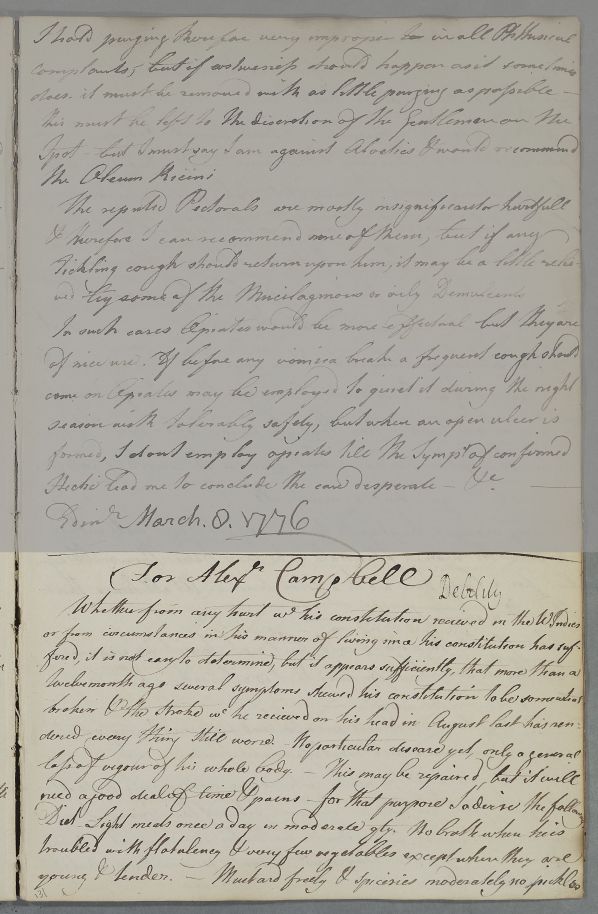 I hold purging therefore very improper in all Phthisical
complaints, but if costiveness should happen as it sometimes
does. it must be removed with as little purging as possible —
this must be left to the discretion of the Gentlemen on the
Spot - but I must say I am against Aloetics & would recommend
the Oleum Ricini
The reputed Pectorals are mostly insignificant or hurtfull
& therefore I can recommend none of them, but if any
tickling cough should return upon him, it may be a little relie-
ved by some of the Mucilaginous or oily Demulcents
In such cases Opiates would be more effectual but they are
of nice use. If before any vomica break a frequent cough should
come on Opiates may be employed to quiet it during the night
season with tolerably safety, but when an open ulcer is
formed, I dont employ opiates till the Sympt of confirmed
Hectic lead me to conclude the case desperate — &c
Edinr March. 8. 1776
For Alexr Campbell Debility
Whether from any hurt wc his constitution received in the W Indies
or from circumstances in his manner of living since his constitution has suf-
fered, it is not easy to determine, but it appears sufficiently, that more than a
twelvemonth ago several symptoms shewed his constitution to be somewhat
broken & the stroke wc he received on his head in August last has ren-
dered every thing still worse. No particular disease yet, only a general
loss of vigour of his whole body. — This may be repaired, but it will
need a good deal of time & pains - for that purpose I advise the following
Diet - Light meals once a day in moderate qty. No broth when he is
troubled with flatulency & very few vegetables except when they are
young & tender. — Mustard freely & spiceries moderately no pickles
131